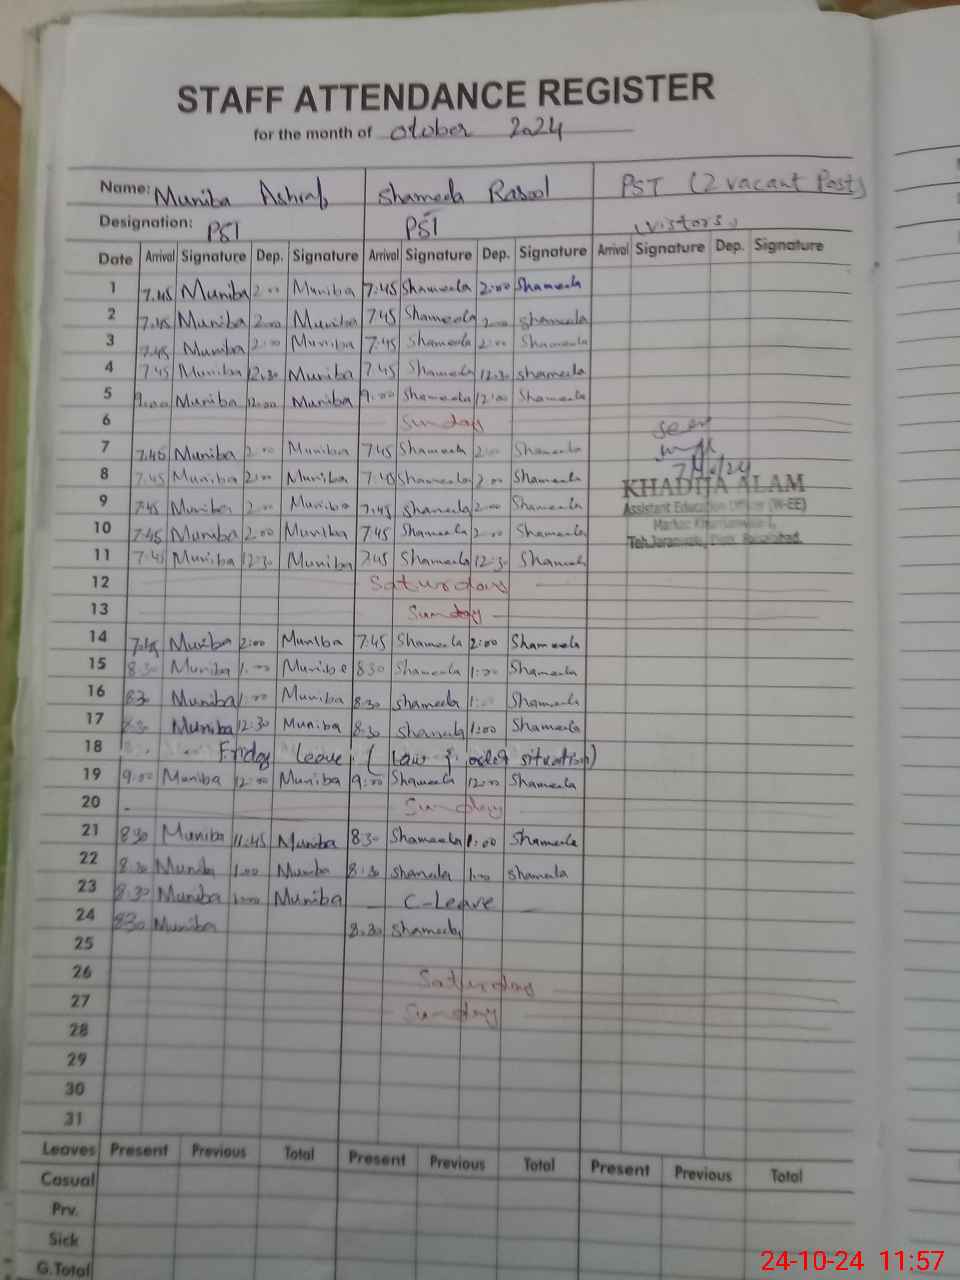 STAFF ATTENDANCE REGISTER
for the month of otober 2024
Name: Muniba Ashraf Shameela Rasool PST (2 vacant Post)
Designation: PST PST (vistors)
Date Arrival Signature Dep. Signature Arrival Signature Dep. Signature Arrival Signature Dep. Signature
1 7.45 Muniba 2:00 Muniba 7:45 Shameela 2:00 Shameela
2 7.45 Muniba 2:00 Muniba 7:45 Shameela 2:00 Shameela
3 7.45 Muniba 2:00 Muniba 7:45 Shameela 2:00 Shameela
4 7.45 Muniba 12.30 Muniba 7.45 Shameela 12.30 Shameela
5 9:00 Muniba 12:00 Muniba 9:00 Shameela 12:00 Shameela
6 Sunday
seen
7 7.45 Muniba 2:00 Muniba 7.45 Shameela 2:00 Shameela
8 7.45 Muniba 2:00 Muniba 7.45 Shameela 2:00 Shameela
KHADIJA ALAM
9 7:45 Muniba 2:00 Muniba 7.45 Shameela 2:00 Shameela
Assistant Education Officer (W-EE)
10 7:45 Muniba 2:00 Muniba 7:45 Shameela 2:00 Shameela
Markaz
Teh.Jaranwala, Distt. Faisalabad.
11 7:45 Muniba 12:30 Muniba 7:45 Shameela 12:30 Shameela
12 Saturday
13 Sunday
14 7:45 Muniba 2:00 Muniba 7:45 Shameela 2:00 Shameela
15 8:30 Muniba 1:00 Muniba 8:30 Shameela 1:00 Shameela
16 8:30 Muniba 1:00 Muniba 8:30 Shameela 1:00 Shameela
17 8:30 Muniba 12:30 Muniba 8:30 Shameela 1:00 Shameela
18 Friday Leave (Law & order situation)
19 9:00 Muniba 12:00 Muniba 9:00 Shameela 12:00 Shameela
20 Sunday
21 8:30 Muniba 11:45 Muniba 8:30 Shameela 1:00 Shameela
22 8:30 Muniba 1:00 Muniba 8:30 Shameela 1:00 Shameela
23 8:30 Muniba 1:00 Muniba C-Leave
24 8:30 Muniba 8.30 Shameela
25
26 Saturday
27 Sunday
28
29
30
31
Leaves Present Previous Total Present Previous Total Present Previous Total
Casual
Prv.
Sick
G.Total
24-10-24 11:57